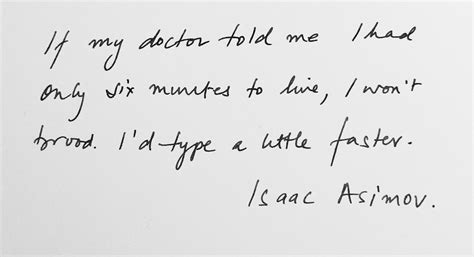 If my doctor told me I had
only six minutes to live, I won't
brood. I'd type a little faster.
Isaac Asimov.